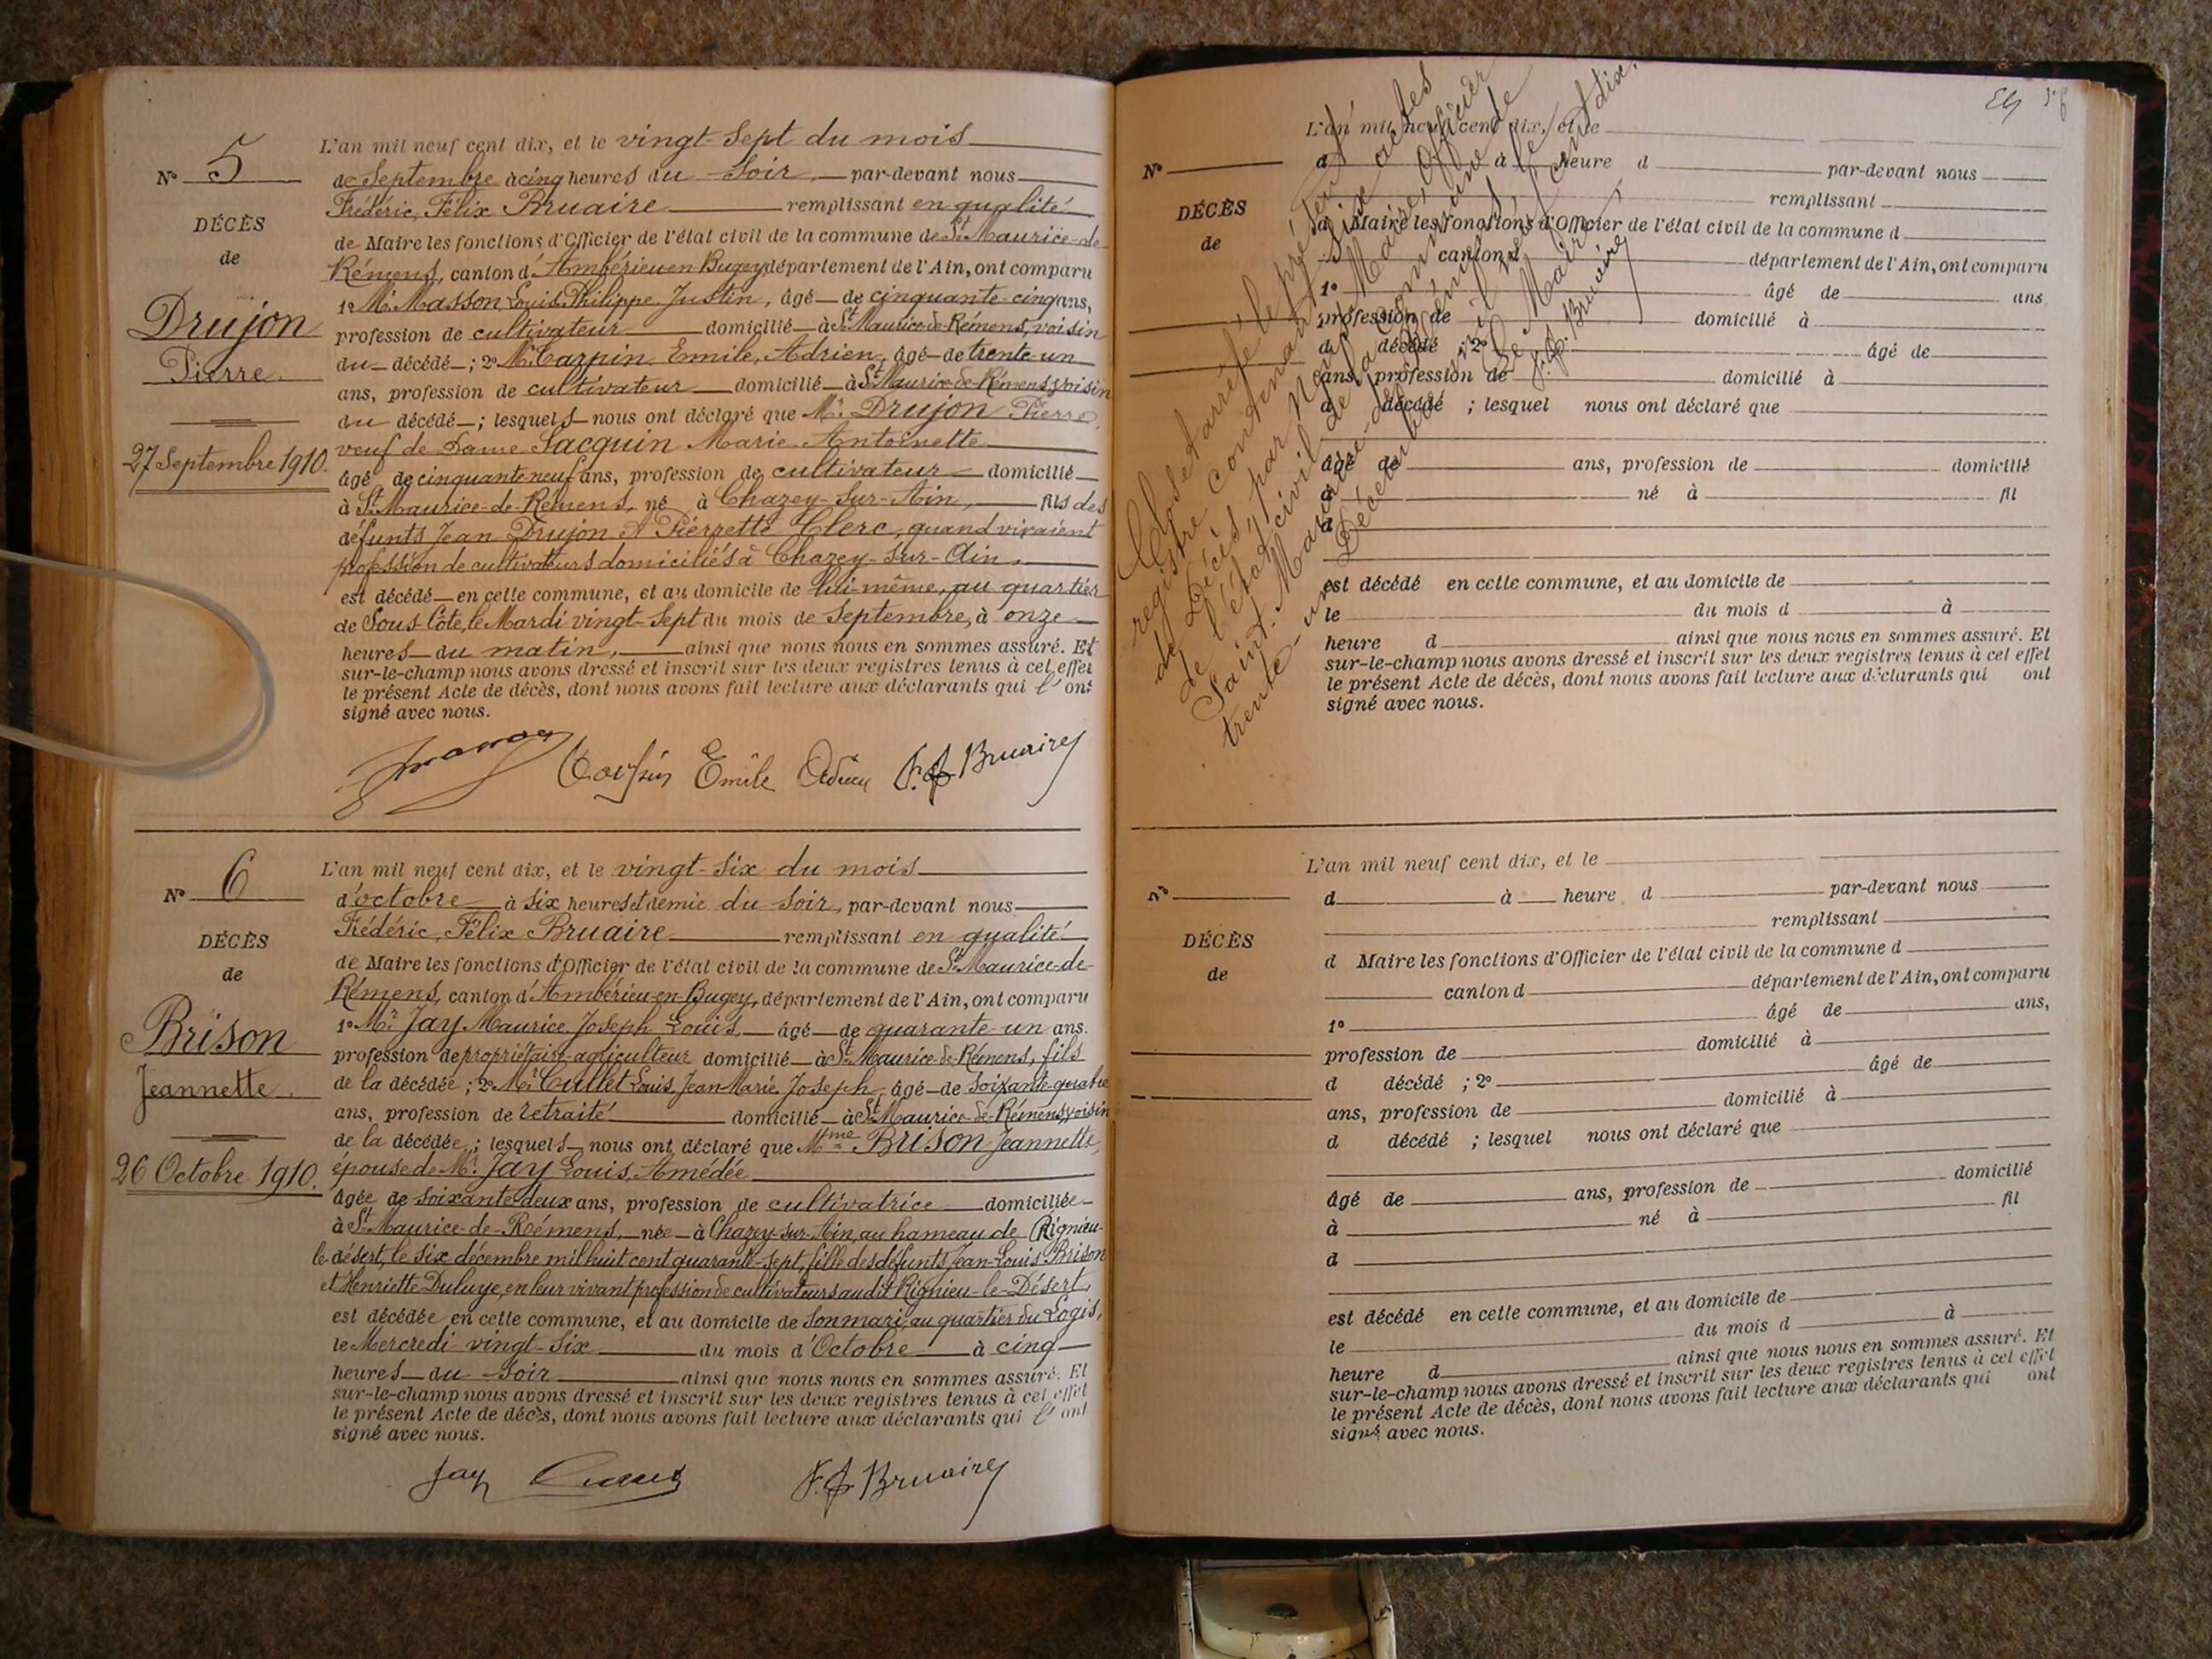 N° 5
DÉCÈS
de
Drujon
Pierre.
27 Septembre 1910.
L'an mil neuf cent dix, et le vingt-sept du mois
de Septembre à cinq heures du soir, par-devant nous
Frédéric, Félix Bruaire remplissant en qualité
de Maire les fonctions d'Officier de l'état civil de la commune de St Maurice-de-
Rémens, canton d'Ambérieu en-Bugey département de l'Ain, ont comparu
1° Mr Masson, Louis Philippe Justin, âgé de cinquante-cinq ans,
profession de cultivateur domicilié à St Maurice-de-Rémens, voisin
du décédé ; 2° Mr Carpin Emile, Adrien, âgé de trente-un
ans, profession de cultivateur domicilié à St Maurice-de-Rémens, voisin
du décédé ; lesquels nous ont déclaré que Mr Drujon Pierre,
veuf de Dame Jacquin Marie Antoinette
âgé de cinquante neuf ans, profession de cultivateur domicilié
à St Maurice-de-Rémens, né à Chazey-sur-Ain, fils des
défunts Jean Drujon et Pierrette Clerc, quand vivaient
profession de cultivateurs domiciliés à Chazey-sur-Ain.
est décédé en cette commune, et au domicile de lui-même, au quartier
de Sous-Côte, le Mardi vingt-sept du mois de Septembre, à onze
heures du matin, ainsi que nous nous en sommes assuré. Et
sur-le-champ nous avons dressé et inscrit sur les deux registres tenus à cet effet
le présent Acte de décès, dont nous avons fait lecture aux déclarants qui l'ont
signé avec nous.
Carpin Emile Adrien F. F. Bruaire
N° 6
DÉCÈS
de
Brison
Jeannette.
26 Octobre 1910.
L'an mil neuf cent dix, et le vingt-six du mois
d'octobre à six heures et demie du soir, par-devant nous
Frédéric, Félix Bruaire remplissant en qualité
de Maire les fonctions d'Officier de l'état civil de la commune de St Maurice-de-
Rémens, canton d'Ambérieu-en-Bugey, département de l'Ain, ont comparu
1° Mr Jay Maurice Joseph Louis, âgé de quarante-un ans.
profession de propriétaire-agriculteur domicilié à St Maurice-de-Rémens, fils
de la décédée ; 2° Mr Cullet Louis Jean Marie Joseph, âgé de soixante-quatre
ans, profession de retraité domicilié à St Maurice-de-Rémens, voisin
de la décédée ; lesquels nous ont déclaré que Mme Brison Jeannette,
épouse de Mr Jay Louis, Amédée
âgée de soixante-deux ans, profession de cultivatrice domiciliée
à St Maurice-de-Rémens, née à Chazey-sur-Ain, au hameau de Rignieu-
le-désert, le six décembre mil huit cent quarante-sept, fille des défunts Jean-Louis Brison
et Henriette Duluye, en leur vivant profession de cultivateurs audit Rignieu-le-Désert,
est décédée en cette commune, et au domicile de son mari, au quartier du Logis,
le Mercredi vingt-six du mois d'Octobre à cinq
heures du soir ainsi que nous nous en sommes assuré. Et
sur-le-champ nous avons dressé et inscrit sur les deux registres tenus à cet effet
le présent Acte de décès, dont nous avons fait lecture aux déclarants qui l'ont
signé avec nous.
Jay Cullet F. F. Bruaire
Clos et arrêté le présent
registre contenant six actes
de Décès, par Nous Maire, Officier
de l'état civil de la commune de
Saint-Maurice-de-Rémens, le
trente-un Décembre mil neuf cent dix.
Le Maire,
F. F. Bruaire
N°
DÉCÈS
de
L'an mil neuf cent dix, et le
d à heure d par-devant nous
remplissant
d Maire les fonctions d'Officier de l'état civil de la commune d
canton d département de l'Ain, ont comparu
1° âgé de ans
profession de domicilié à
d décédé ; 2° âgé de
ans, profession de domicilié à
d décédé ; lesquel nous ont déclaré que
âgé de ans, profession de domicilié
à né à fil
d
est décédé en cette commune, et au domicile de
le du mois d à
heure d ainsi que nous nous en sommes assuré. Et
sur-le-champ nous avons dressé et inscrit sur les deux registres tenus à cet effet
le présent Acte de décès, dont nous avons fait lecture aux déclarants qui ont
signé avec nous.
N°
DÉCÈS
de
L'an mil neuf cent dix, et le
d à heure d par-devant nous
remplissant
d Maire les fonctions d'Officier de l'état civil de la commune d
canton d département de l'Ain, ont comparu
1° âgé de ans,
profession de domicilié à
d décédé ; 2° âgé de
ans, profession de domicilié à
d décédé ; lesquel nous ont déclaré que
âgé de ans, profession de domicilié
à né à fil
d
est décédé en cette commune, et au domicile de
le du mois d à
heure d ainsi que nous nous en sommes assuré. Et
sur-le-champ nous avons dressé et inscrit sur les deux registres tenus à cet effet
le présent Acte de décès, dont nous avons fait lecture aux déclarants qui ont
signé avec nous.